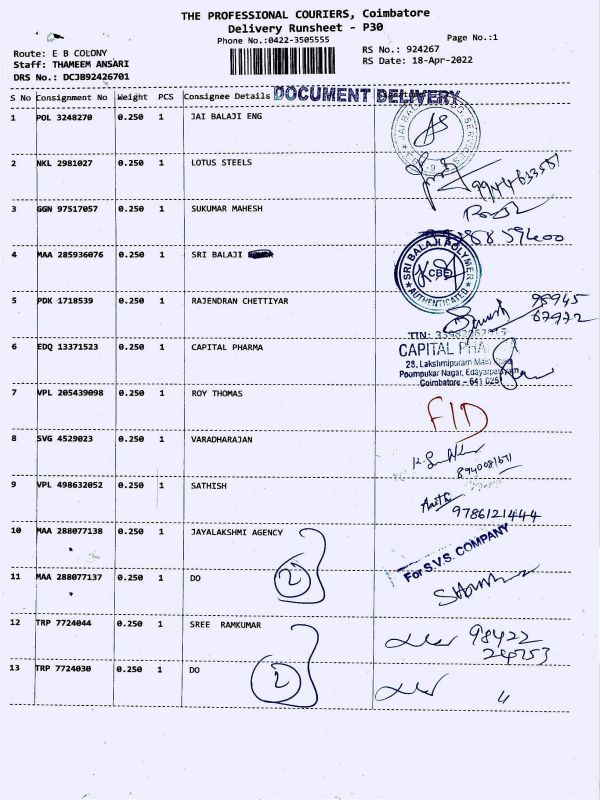 THE PROFESSIONAL COURIERS, Coimbatore
Delivery Runsheet - P30
Phone No.:0422-3505555
Page No.:1
Route: E B COLONY
RS No.: 924267
Staff: THAMEEM ANSARI
RS Date: 18-Apr-2022
DRS No.: DCJB92426701
S No Consignment No Weight PCS Consignee Details
DOCUMENT DELIVERY
1 POL 3248270 0.250 1 JAI BALAJI ENG
2 NKL 2981027 0.250 1 LOTUS STEELS
3 GGN 97517057 0.250 1 SUKUMAR MAHESH
4 MAA 285936076 0.250 1 SRI BALAJI
SRI BALAJI POLYMER
CBE
AUTHENTICATED
5 PDK 1718539 0.250 1 RAJENDRAN CHETTIYAR
98945
67972
TIN:
6 EDQ 13371523 0.250 1 CAPITAL PHARMA
CAPITAL
28, Lakshmipuram Main
Poompukar Nagar, Edayarpalayam
Coimbatore - 641 025
7 VPL 205439098 0.250 1 ROY THOMAS
8 SVG 4529023 0.250 1 VARADHARAJAN
9 VPL 498632052 0.250 1 SATHISH
9786121444
10 MAA 288077138 0.250 1 JAYALAKSHMI AGENCY
For S.V.S. COMPANY
11 MAA 288077137 0.250 1 DO
2
12 TRP 7724044 0.250 1 SREE RAMKUMAR
98422
13 TRP 7724030 0.250 1 DO
2